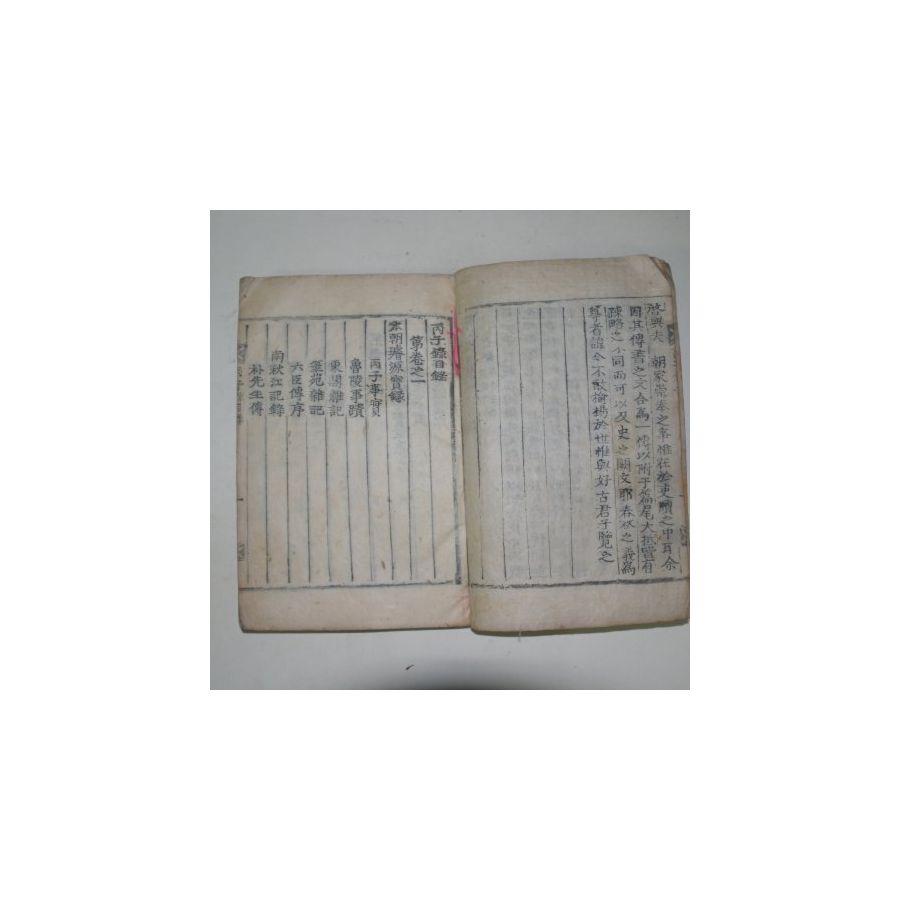 啓興夫 朝家崇奉之事惟在於吏牘之中耳余
因其傳書之文合為一傳以附于篇尾大抵豈有
疎略之小同而可以及史之闕文耶春秋之義為
尊者諱今不敢揄揚於世惟與好古君子覽之
丙子錄目錄
第卷之一
本朝璿源寶錄
丙子事實
魯陵事蹟
東閣雜記
筆苑雜記
六臣傳序
南秋江記錄
朴先生傳